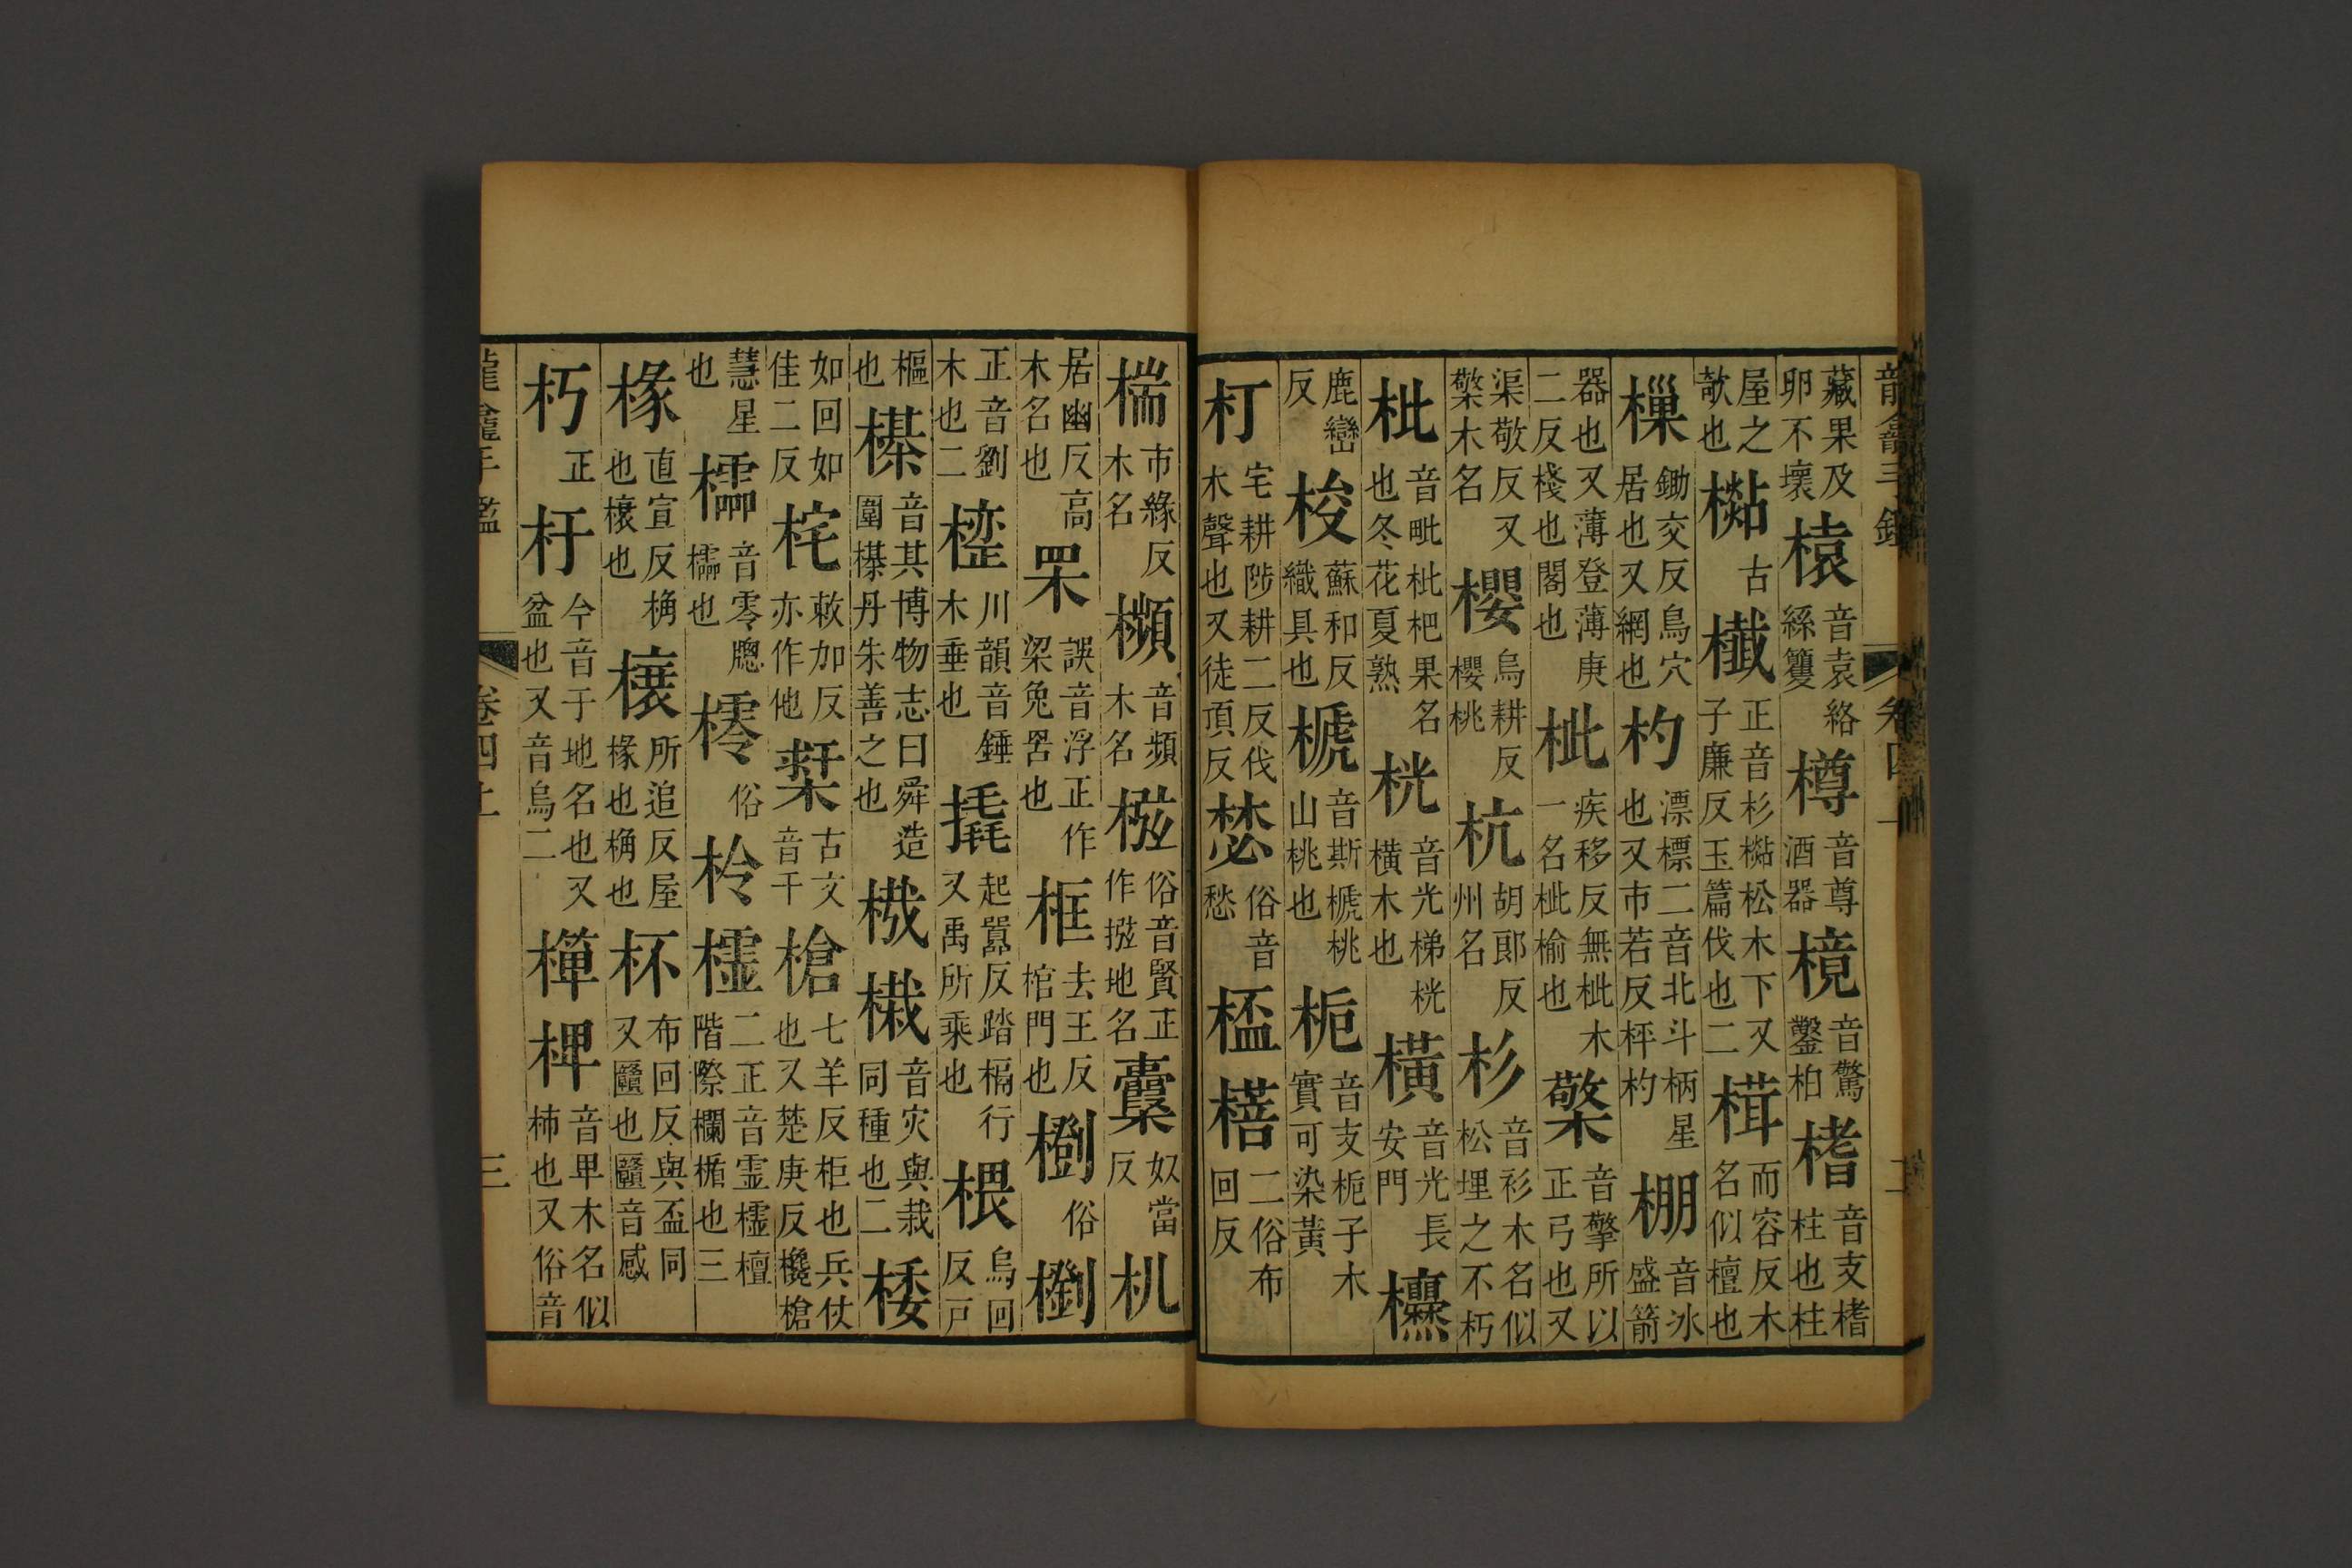 藏果及卵不壞榬音袁絡絲籰樽音尊酒器樈音驚鑿柏榰音支榰柱也柱
屋之欹也㯠古櫼正音杉㯠松木下又子廉反玉篇伐也二楫而容反木名似檀也
樔鋤交反鳥穴居也又網也杓漂標二音北斗柄星也又市若反枰杓棚音冰盛箭
器也又薄登薄庚二反棧也閣也枇疾移反無枇木一名枇榆也檠音擎所以正弓也又
渠敬反又檠木名櫻烏耕反櫻桃杭胡郎反州名杉音衫木名似松埋之不朽
枇音毗枇杷果名也冬花夏熟桄音光梯桄橫木也橫音光長安門欙
鹿巒反梭蘇和反織具也榹音斯榹桃山桃也梔音支梔子木實可染黃
朾宅耕陟耕二反伐木聲也又徒頂反俗音愁二俗布回反
椯市緣反木名櫇音頻木名俗音賢正作地名囊奴當反机
居幽反高木名也罘誤音浮正作梁兔罟也框去王反棺門也俗
正音劉木也二川韻音錘木垂也橇起嚻反踏槅行又禹所乘也椳烏回反戸
樞也櫀音其博物志曰舜造圍櫀丹朱善之也音灾與栽同種也二楼
如回如佳二反㭟敕加反亦作他栞古文音干槍七羊反柜也兵仗也又楚庚反欃槍
慧星也櫺音零牕櫺也俗柃櫺二正音霊櫺檀階際欄楯也三
椽直宣反桷也榱也榱所追反屋椽也桷也杯布回反與盃同又也音感
朽正杅今音于地名也又盆也又音烏二椑音畢木名似柿也又俗音
龍龕手鑑 卷四上 三